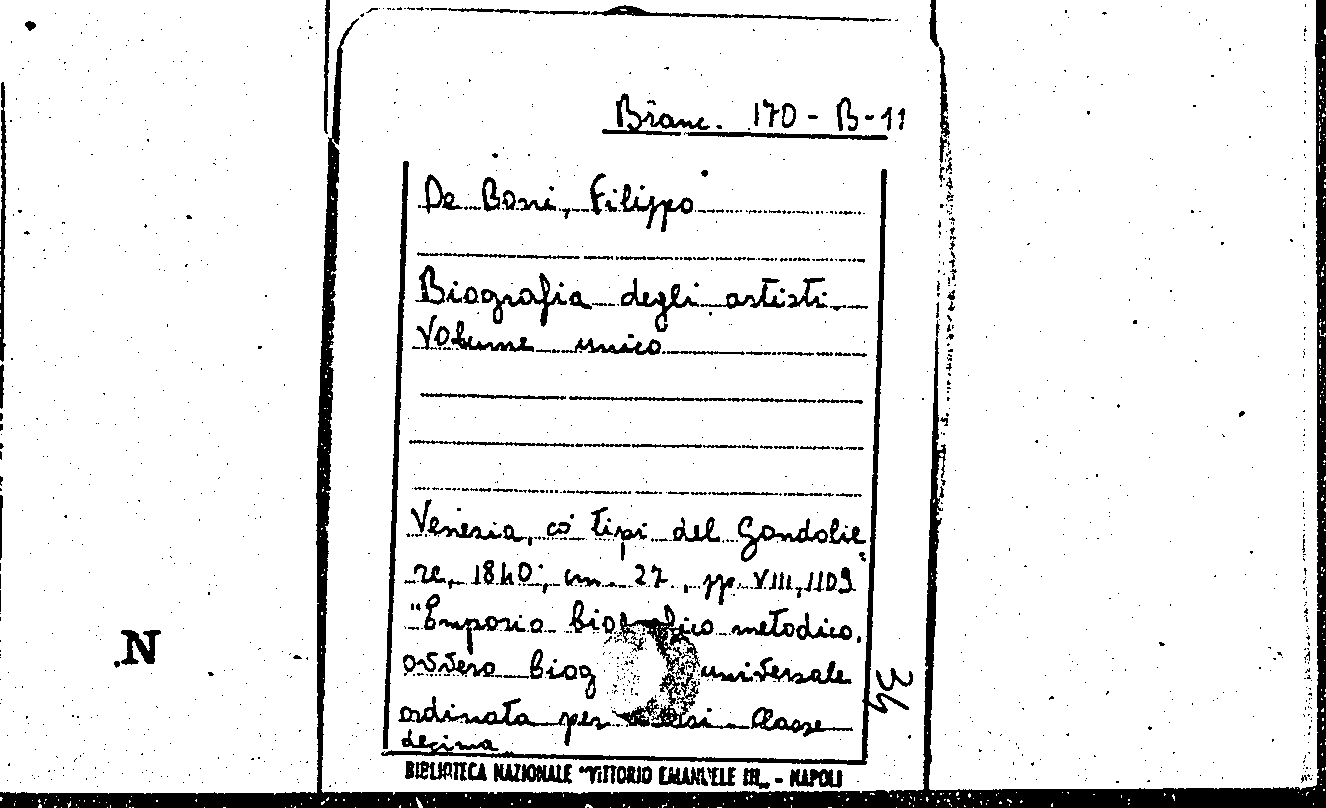 Branc. 170 - B-11
De Boni, Filippo
Biografia degli artisti.
Volume unico
Venezia, co' tipi del Gondolie
re, 1840; cm. 27, pp. VIII, 1109
"Emporio biografico metodico,
ovvero biog universale
ordinata per classi. Classe
decima
34
.N
BIBLIOTECA NAZIONALE "VITTORIO EMANUELE III„ - NAPOLI